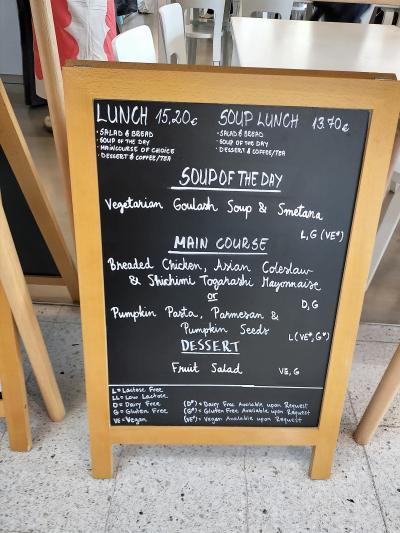 LUNCH 15,20€
· SALAD & BREAD
· SOUP OF THE DAY
· MAINCOURSE OF CHOICE
· DESSERT & COFFEE/TEA
SOUP LUNCH 13.70€
· SALAD & BREAD
· SOUP OF THE DAY
· DESSERT & COFFEE/TEA
SOUP OF THE DAY
Vegetarian Goulash Soup & Smetana
L,G (VE*)
MAIN COURSE
Breaded Chicken, Asian Coleslaw
& Shichimi Togarashi Mayonnaise
or D,G
Pumpkin Pasta, Parmesan &
Pumpkin Seeds
L(VE*,G*)
DESSERT
Fruit Salad VE, G
L = Lactose Free
LL = Low Lactose
D = Dairy Free (D*) = Dairy Free Available upon Request
G = Gluten Free (G*) = Gluten Free Available upon Request
VE = Vegan (VE*) = Vegan Available upon Request